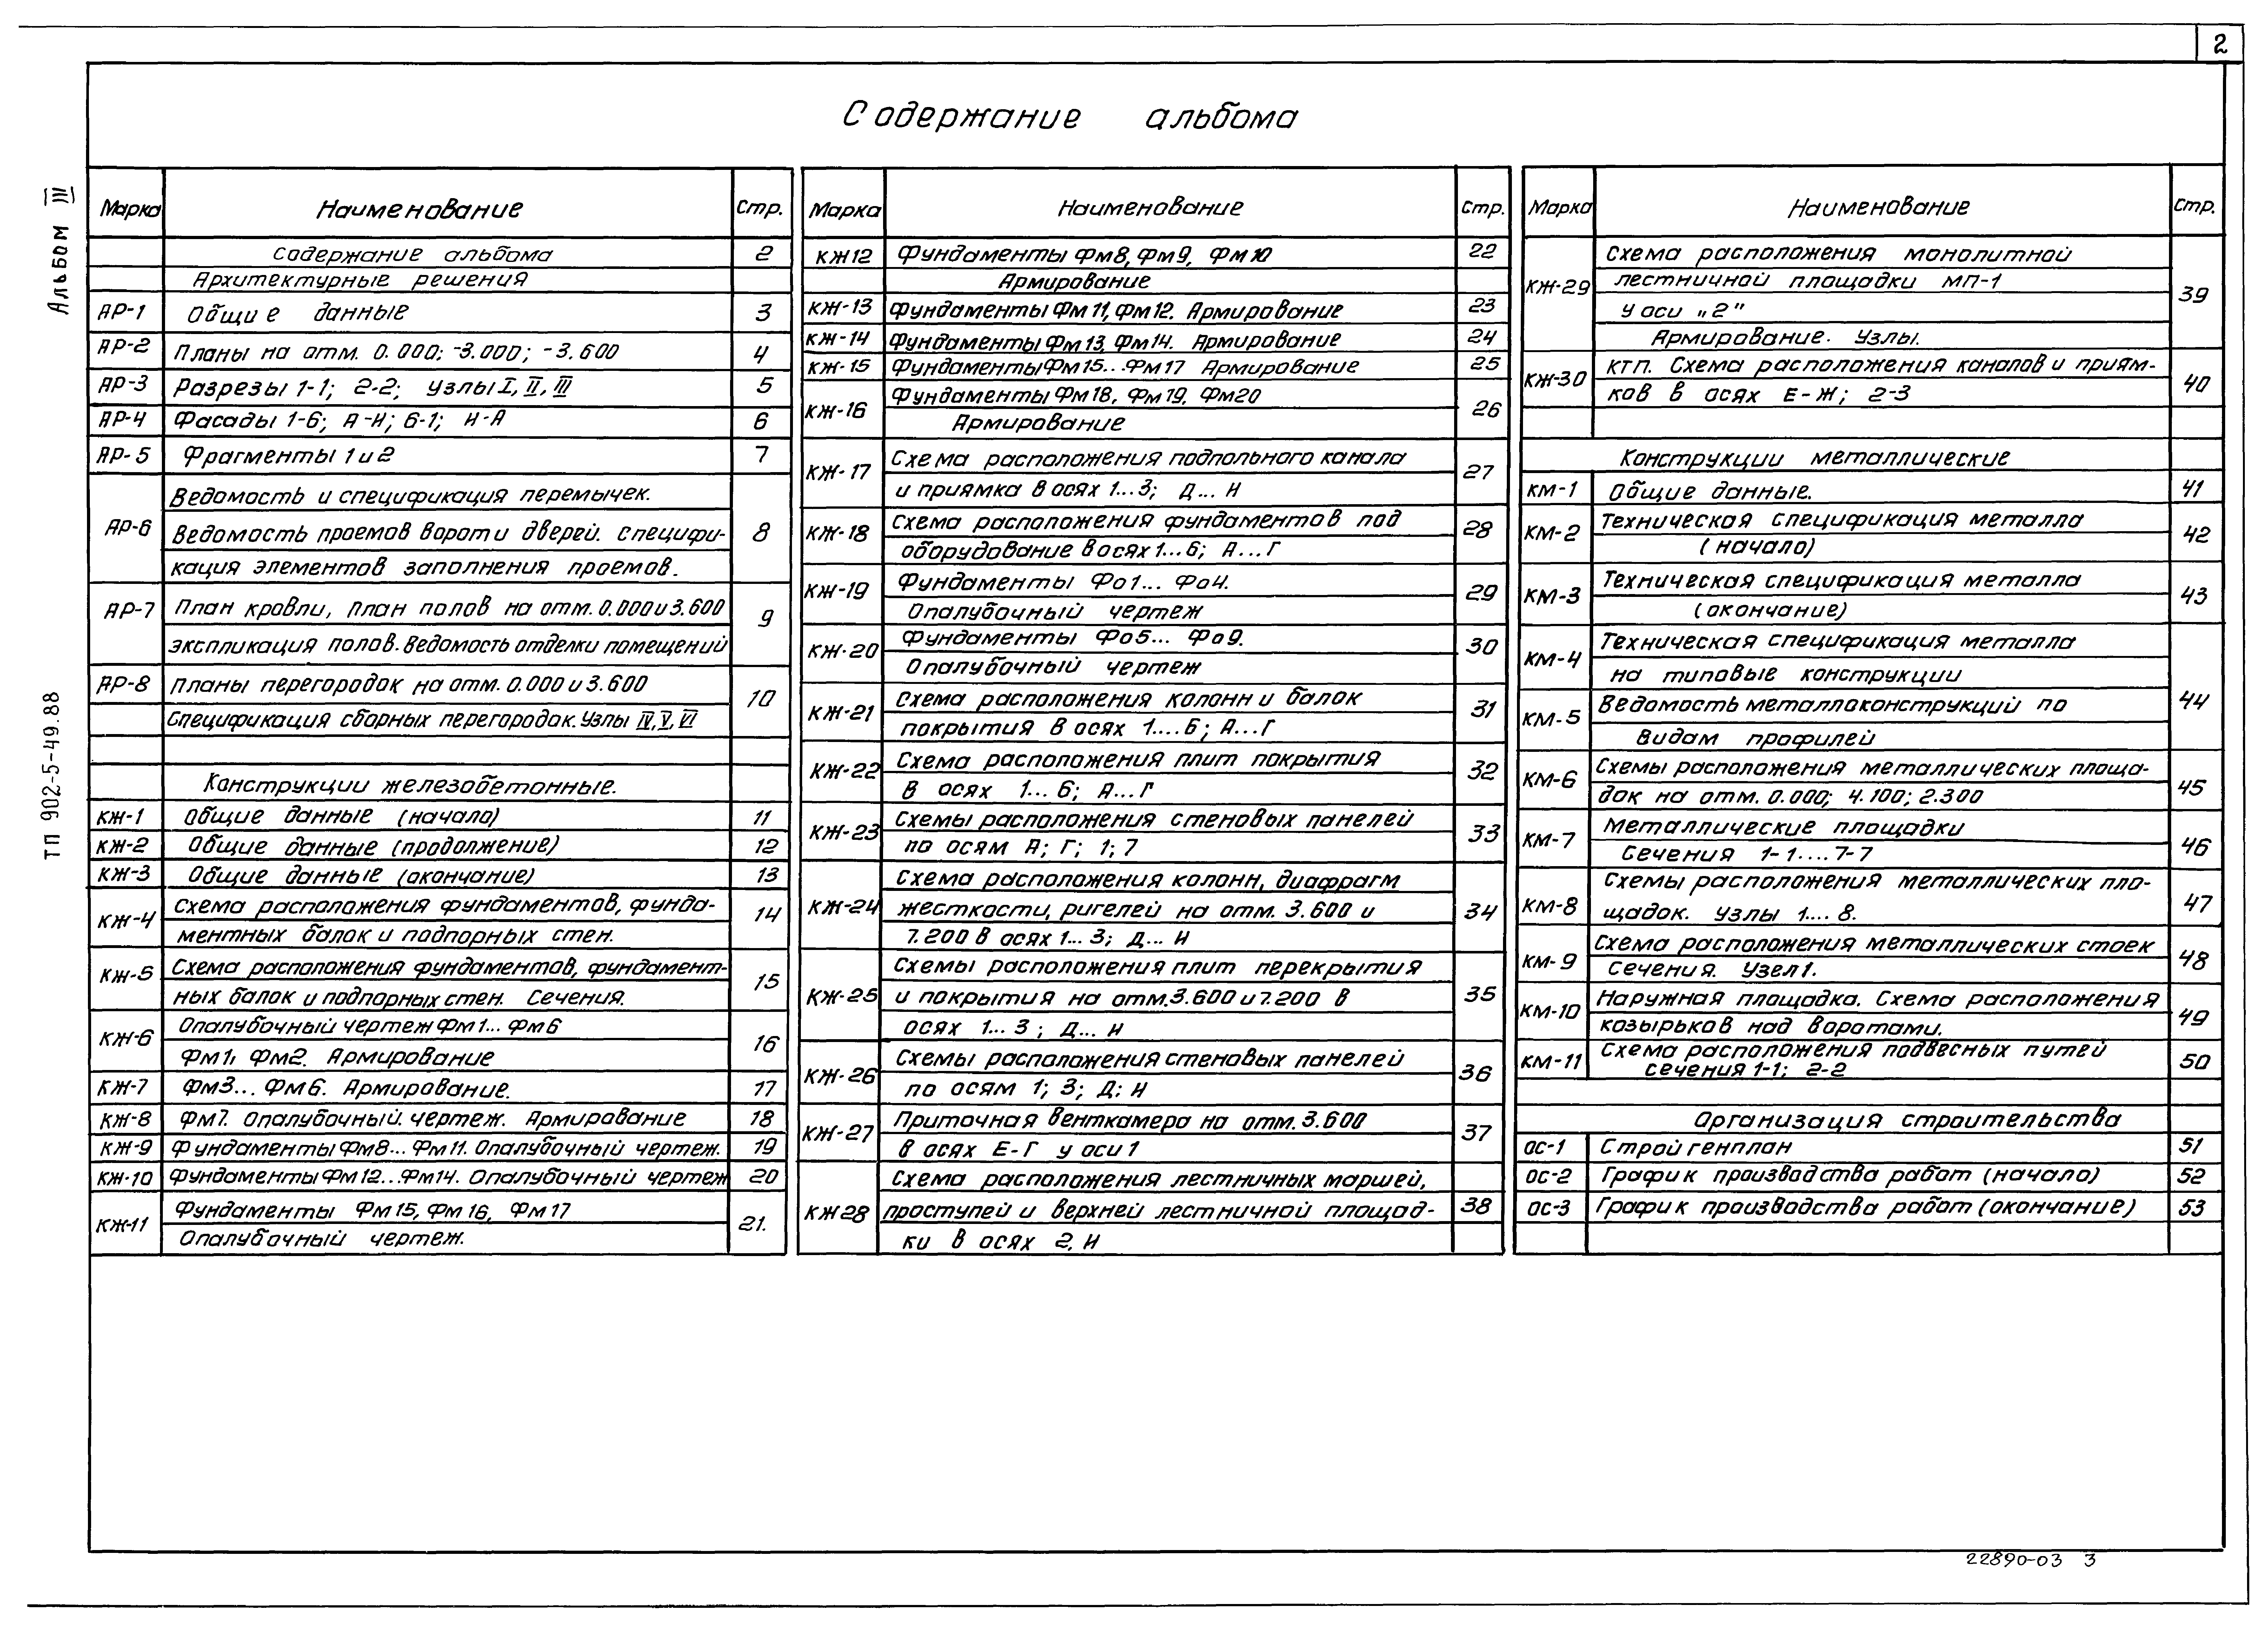 2
Содержание альбома
Альбом III
ТП 902-5-49.88
Марка Наименование Стр.
Содержание альбома 2
Архитектурные решения
АР-1 Общие данные 3
АР-2 Планы на отм. 0.000; -3.000; -3.600 4
АР-3 Разрезы 1-1; 2-2; узлы I, II, III 5
АР-4 Фасады 1-6; А-И; 6-1; И-А 6
АР-5 Фрагменты 1 и 2 7
АР-6 Ведомость и спецификация перемычек. 8
Ведомость проемов ворот и дверей. специфи-
кация элементов заполнения проемов.
АР-7 План кровли, план полов на отм. 0.000 и 3.600 9
экспликация полов. Ведомость отделки помещений
АР-8 Планы перегородок на отм. 0.000 и 3.600 10
Спецификация сборных перегородок. Узлы IV, V, VI
Конструкции железобетонные.
КЖ-1 Общие данные (начало) 11
КЖ-2 Общие данные (продолжение) 12
КЖ-3 Общие данные (окончание) 13
КЖ-4 Схема расположения фундаментов, фунда- 14
ментных балок и подпорных стен.
КЖ-5 Схема расположения фундаментов, фундамент- 15
ных балок и подпорных стен. Сечения.
КЖ-6 Опалубочный чертеж Фм1... Фм6 16
Фм1, Фм2. Армирование
КЖ-7 Фм3... Фм6. Армирование. 17
КЖ-8 Фм7. Опалубочный. чертеж. Армирование 18
КЖ-9 Фундаменты Фм8... Фм11. Опалубочный чертеж. 19
КЖ-10 Фундаменты Фм12...Фм14. Опалубочный чертеж 20
КЖ-11 Фундаменты Фм15, Фм16, Фм17 21.
Опалубочный чертеж.
Марка Наименование Стр.
КЖ12 Фундаменты Фм8, Фм9, Фм10 22
Армирование
КЖ-13 Фундаменты Фм11, Фм12. Армирование 23
КЖ-14 Фундаменты Фм13, Фм14. Армирование 24
КЖ-15 Фундаменты Фм15...Фм17 Армирование 25
КЖ-16 Фундаменты Фм18, Фм19, Фм20 26
Армирование
КЖ-17 Схема расположения подпольного канала 27
и приямка в осях 1...3; Д... И
КЖ-18 Схема расположения фундаментов под 28
оборудование в осях 1...6; А...Г
КЖ-19 Фундаменты Фо1... Фо4. 29
Опалубочный чертеж
КЖ-20 Фундаменты Фо5... Фо9. 30
Опалубочный чертеж
КЖ-21 Схема расположения колонн и балок 31
покрытия в осях 1....6; А...Г
КЖ-22 Схема расположения плит покрытия 32
в осях 1... 6; А...Г
КЖ-23 Схемы расположения стеновых панелей 33
по осям А; Г; 1; 7
КЖ-24 Схема расположения колонн, диафрагм 34
жесткости, ригелей на отм. 3.600 и
7.200 в осях 1... 3; Д... И
КЖ-25 Схемы расположения плит перекрытия 35
и покрытия на отм. 3.600 и 7.200 в
осях 1... 3; Д... И
КЖ-26 Схемы расположения стеновых панелей 36
по осям 1; 3; Д; И
КЖ-27 Приточная венткамера на отм. 3.600 37
в осях Е-Г у оси 1
КЖ28 Схема расположения лестничных маршей, 38
проступей и верхней лестничной площад-
ки в осях 2, И
Марка Наименование стр.
КЖ-29 Схема расположения монолитной 39
лестничной площадки МП-1
у оси „2"
Армирование. Узлы.
КЖ-30 КТП. Схема расположения каналов и приям- 40
ков в осях Е-Ж; 2-3
Конструкции металлические
КМ-1 Общие данные. 41
КМ-2 Техническая спецификация металла 42
(начало)
КМ-3 Техническая спецификация металла 43
(окончание)
КМ-4 Техническая спецификация металла 44
на типовые конструкции
КМ-5 Ведомость металлоконструкций по
видам профилей
КМ-6 Схемы расположения металлических площа- 45
док на отм. 0.000; 4.100; 2.300
КМ-7 Металлические площадки 46
Сечения 1-1....7-7
КМ-8 Схемы расположения металлических пло- 47
щадок. Узлы 1.... 8.
КМ-9 Схема расположения металлических стоек 48
Сечения. Узел 1.
КМ-10 Наружная площадка. Схема расположения 49
козырьков над воротами.
КМ-11 Схема расположения подвесных путей 50
сечения 1-1; 2-2
Организация строительства
ОС-1 Стройгенплан 51
ОС-2 График производства работ (начало) 52
ОС-3 График производства работ (окончание) 53
22890-03 3